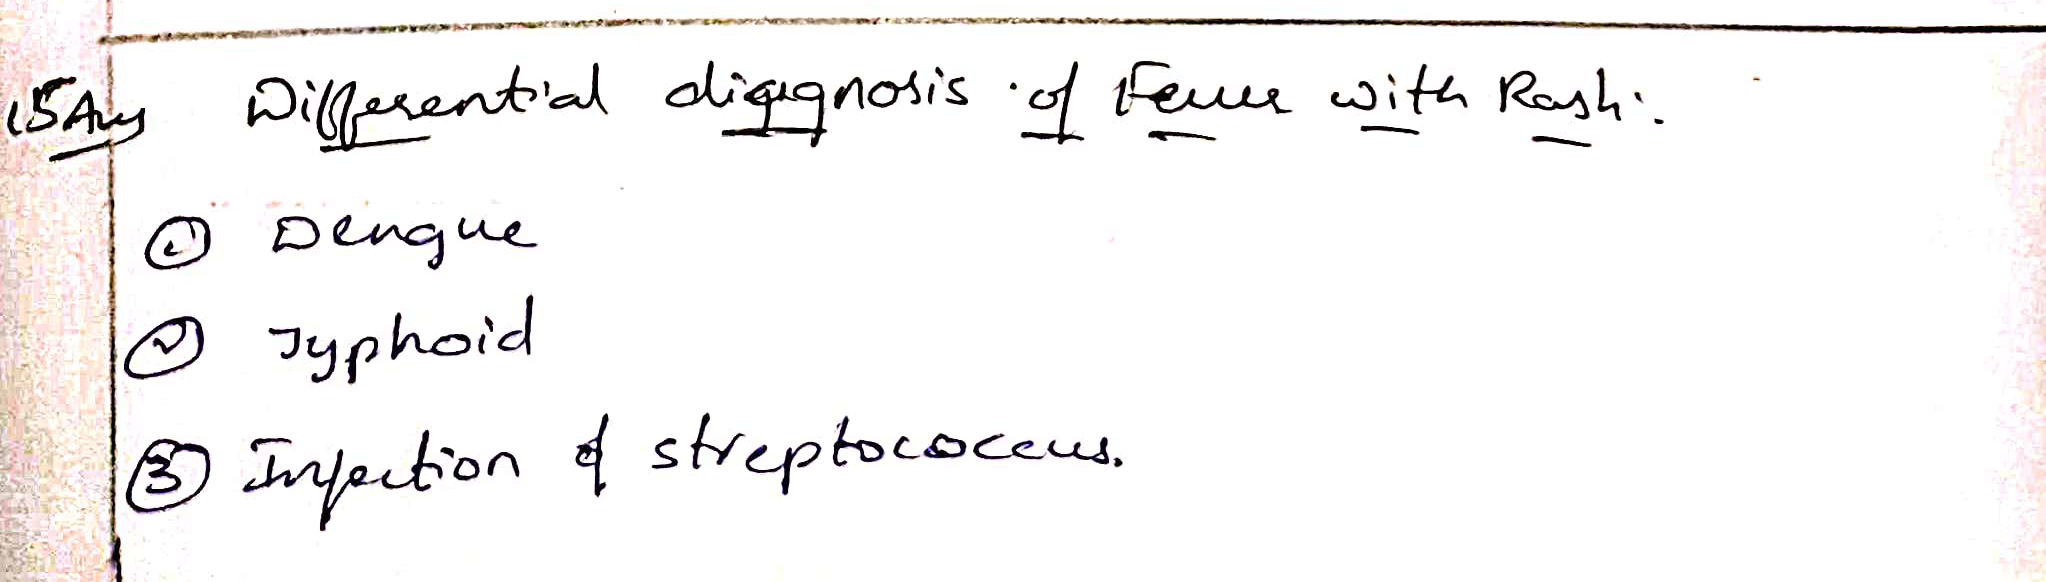 15 Ans Differential diagnosis of Fever with Rash:
① Dengue
② Typhoid
③ Infection of streptococcus.